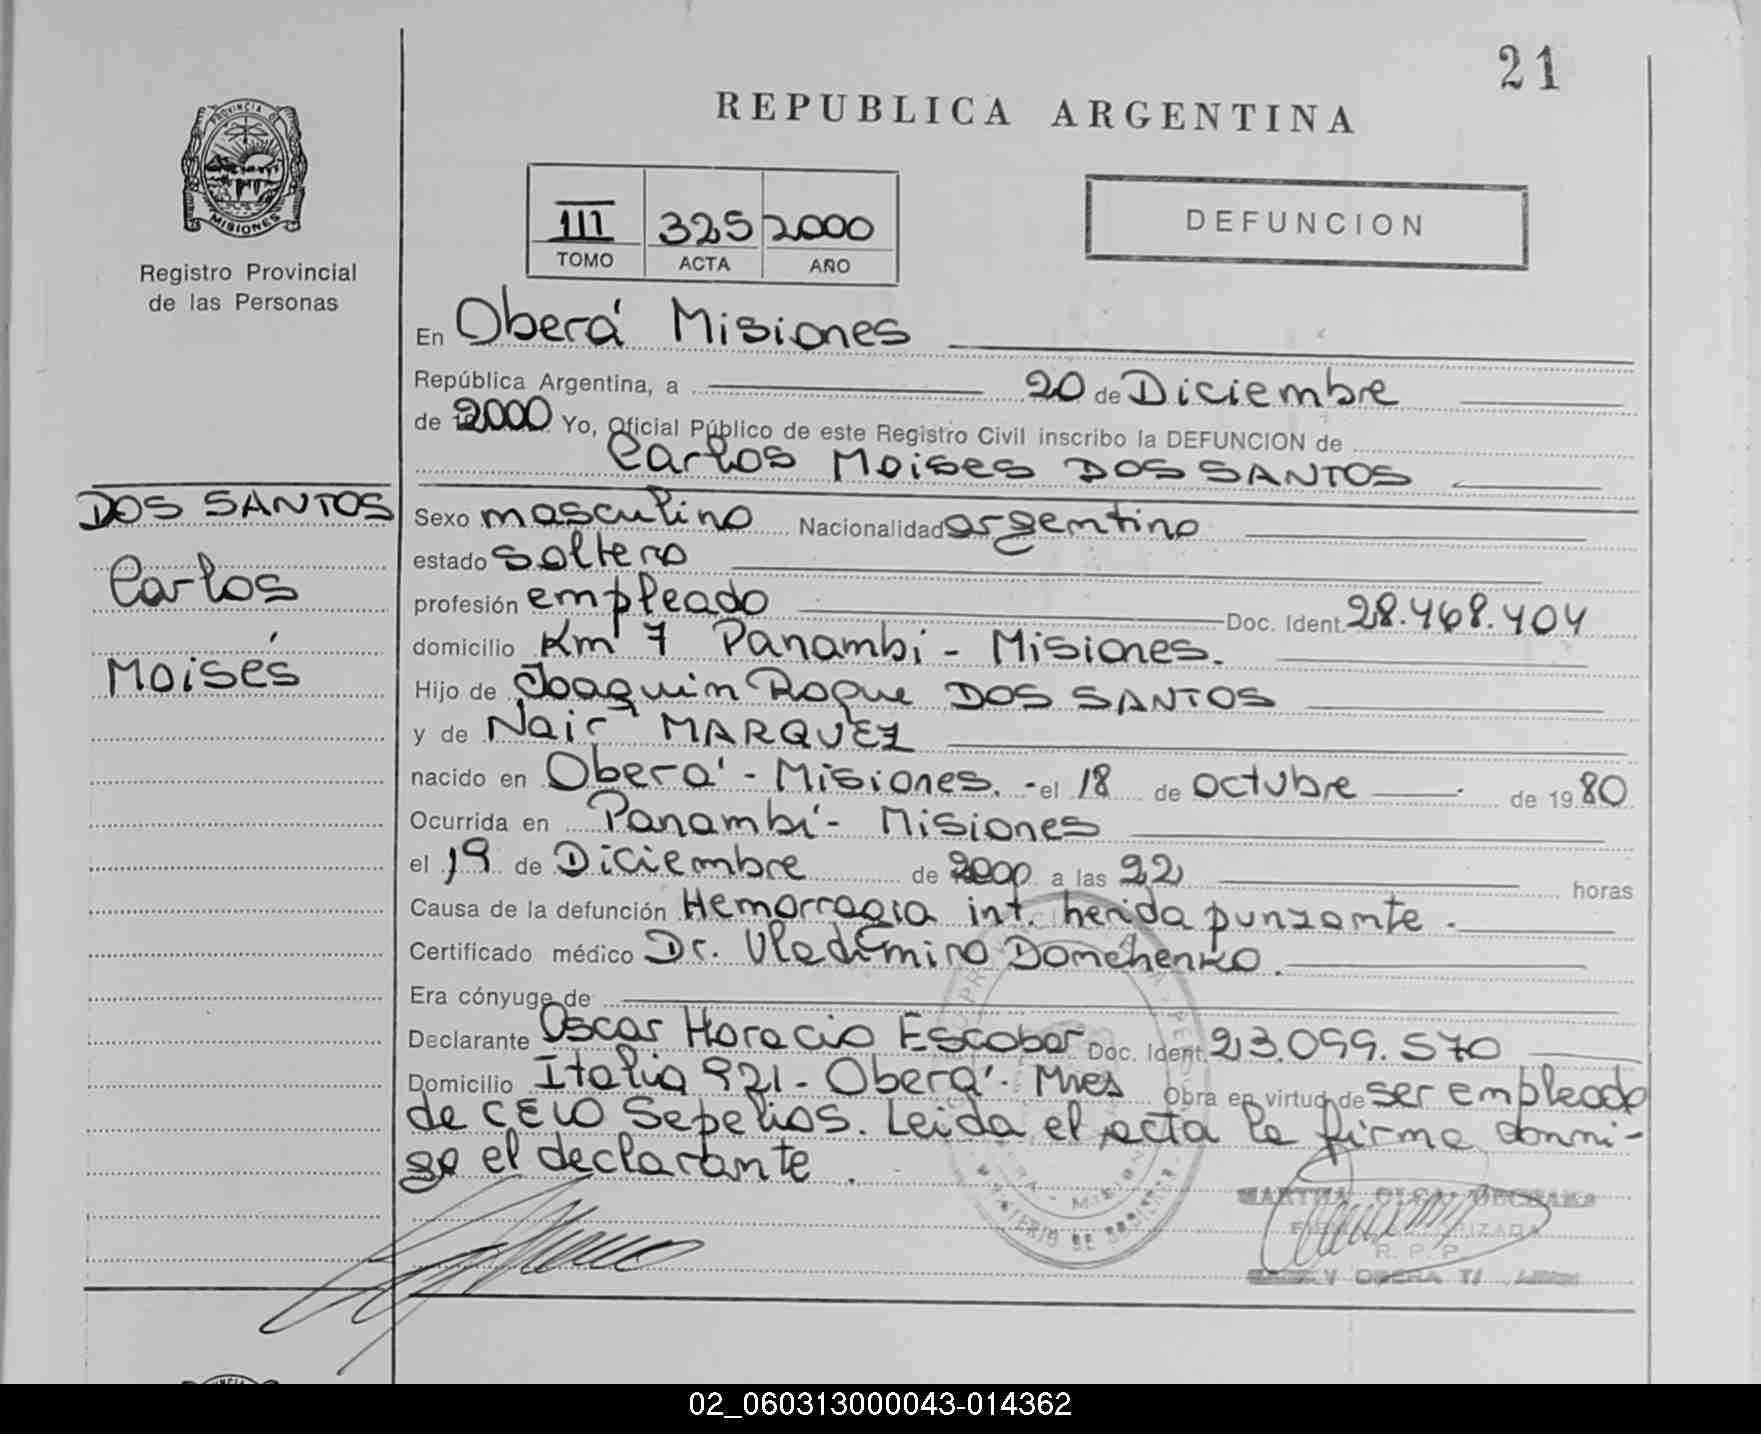 21
REPUBLICA ARGENTINA
PROVINCIA DE
MISIONES
Registro Provincial
de las Personas
III 325 2000
TOMO ACTA AÑO
DEFUNCION
En Oberá Misiones
República Argentina, a 20 de Diciembre
de 2000 Yo, Oficial Público de este Registro Civil inscribo la DEFUNCION de
Carlos Moises DOS SANTOS
DOS SANTOS
Carlos
Moisés
Sexo masculino Nacionalidad argentino
estado soltero
profesión empleado Doc. Ident. 28.468.404
domicilio Km 7 Panambi - Misiones.
Hijo de Joaquin Roque DOS SANTOS
y de Nair MARQUEZ
nacido en Oberá - Misiones. - el 18 de octubre de 1980
Ocurrida en Panambí - Misiones
el 19 de Diciembre de 2000 a las 22 horas
Causa de la defunción Hemorragia int. herida punzante.
Certificado médico Dr. Vladimiro Domchenko.
Era cónyuge de
Declarante Oscar Horacio Escobar Doc. Ident. 23.099.570
Domicilio Italia 921 - Oberá. Mnes Obra en virtud de ser empleado
de CELO Sepelios. Leida el acta la firma conmi-
go el declarante.
R. P. P.
02_060313000043-014362